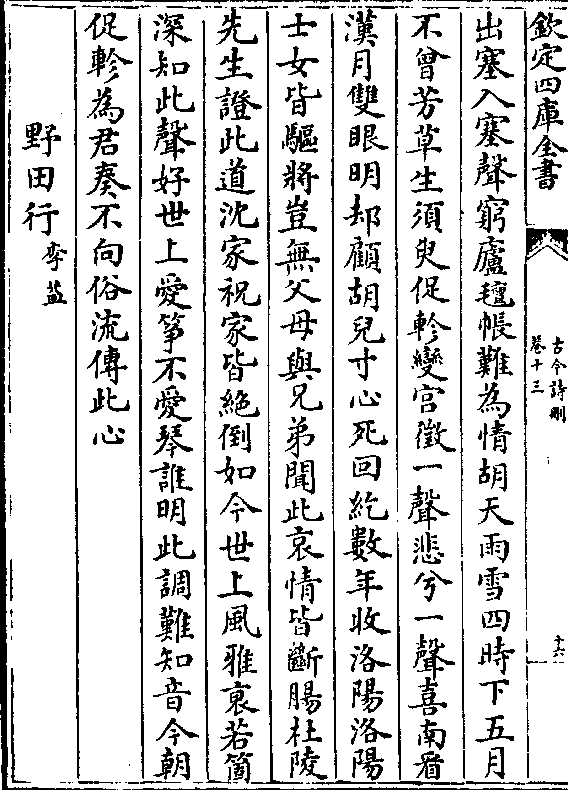 欽定四庫全書
古今詩刪
卷十三
十六
出塞入塞聲窮廬氊帳難為情胡天雨雪四時下五月
不曾芳草生須臾促軫變宮徵一聲悲兮一聲喜南看
漢月雙眼明却顧胡兒寸心死回紇數年收洛陽洛陽
士女皆驅將豈無父母與兄弟聞此哀情皆斷腸杜陵
先生證此道沈家祝家皆絶倒如今世上風雅衰若箇
深知此聲好世上愛箏不愛琴誰明此調難知音今朝
促軫為君奏不向俗流傳此心
野田行 李益